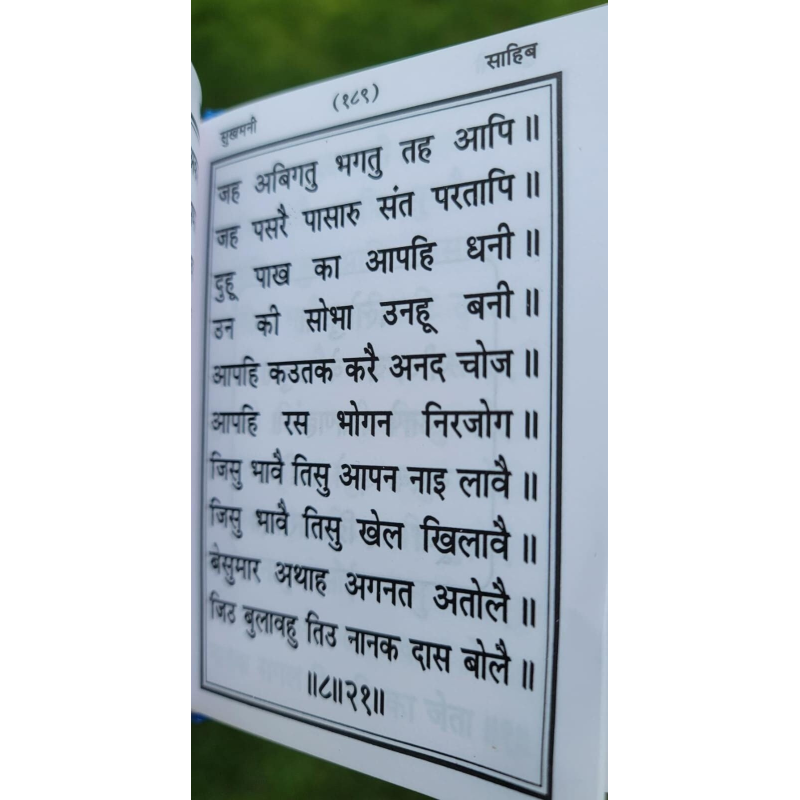 सुखमनी (१८९) साहिब
जह अबिगतु भगतु तह आपि ॥
जह पसरै पासारु संत परतापि ॥
दुहू पाख का आपहि धनी ॥
उन की सोभा उनहू बनी ॥
आपहि कउतक करै अनद चोज ॥
आपहि रस भोगन निरजोग ॥
जिसु भावै तिसु आपन नाइ लावै ॥
जिसु भावै तिसु खेल खिलावै ॥
बेसुमार अथाह अगनत अतोलै ॥
जिउ बुलावहु तिउ नानक दास बोलै ॥
॥८॥२१॥